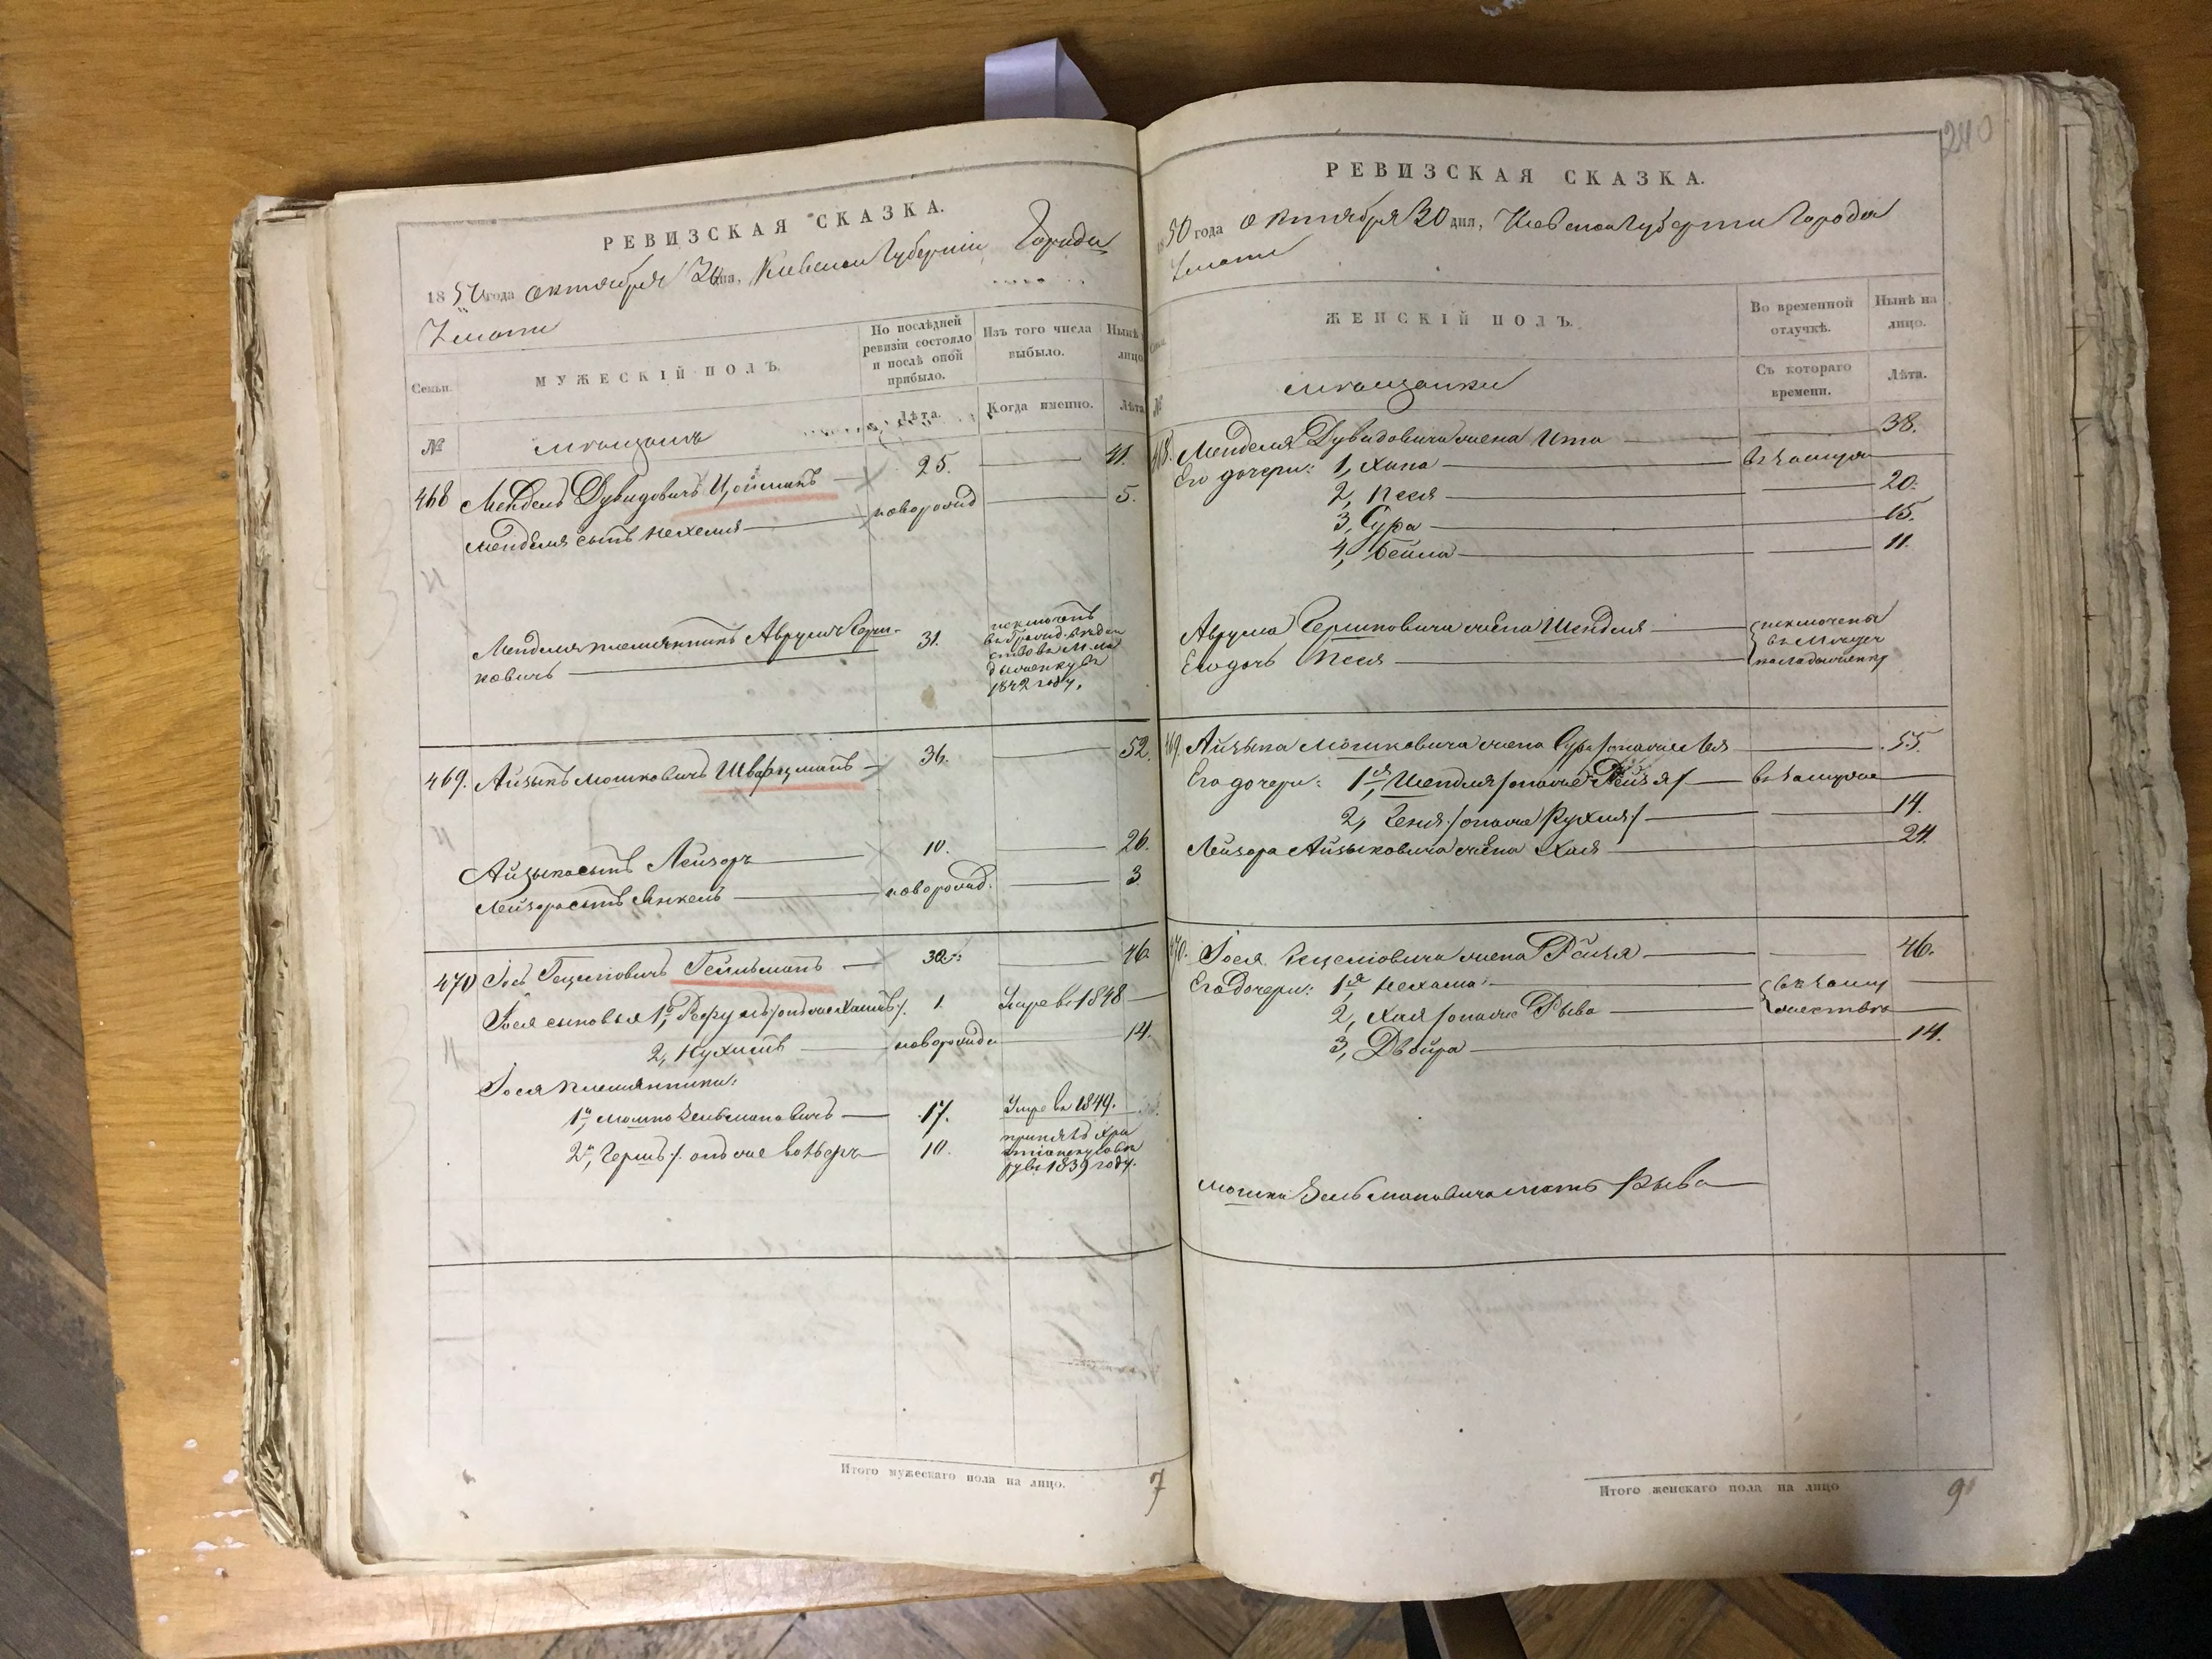 РЕВИЗСКАЯ СКАЗКА.
1850 года октября 30 дня, Киевской Губерніи Города
Умани
Семьи.
МУЖЕСКІЙ ПОЛЪ.
По послѣдней ревизіи состояло и послѣ оной прибыло.
Изъ того числа выбыло.
Нынѣ лицо
№
мѣщанъ
Лѣта.
Когда именно.
Лѣта
468 Мендель Дувидовичъ Цойманъ 25. 41.
Менделя сынъ Нехемия новорожд 5.
Менделя племянникъ Аврумъ Герш-
ковичъ 31.
исключенъ
1842 году.
469. Айзыкъ Мошковичъ Шварцманъ 36. 52
Айзыка сынъ Лейзоръ 10. 26.
Лейзора сынъ Янкель новорожд. 3
470 Іось Гецелювичъ Гейльманъ 32. 46.
Іося сыновья 1й, Рефулъ 1. Умре въ 1848
2, Нухимъ новорожд 14.
Іося племянники:
1й, Мошко Зельмановичъ 17. Умре въ 1849.
2й, Гершъ /: онъ же 10. принялъ хри
въ 1839 году.
Итого мужескаго пола на лицо. 7
240
РЕВИЗСКАЯ СКАЗКА.
1850 года октября 30 дня, Киевской Губерніи Города
Умани
Семьи
ЖЕНСКІЙ ПОЛЪ.
Во временной отлучкѣ.
Нынѣ на лицо.
№
мѣщанки
Съ котораго времени.
Лѣта.
468. Менделя Дувидовича жена Ита 38.
Его дочери: 1, Хана въ замуже
2, Песя 20.
3, Сура 15.
4, Бейла 11.
Аврума Гершковича жена Шендля исключены
Его дочь Песя
469. Айзыка Мошковича жена Сура /она же Лея 55.
Его дочери: 1я, Шендля /она же Рейзя/ въ замуже
2, Геня /она же Рухля/ 14.
Лейзора Айзыковича жена Хая 24.
470. Іося Гецелювича жена Рейзя 46.
Его дочери: 1я, Нехама въ заму
2, Хая /она же Рыва жествѣ
3, Двойра 14.
Мошки Зельмановича мать Рыва
Итого женскаго пола на лицо 9